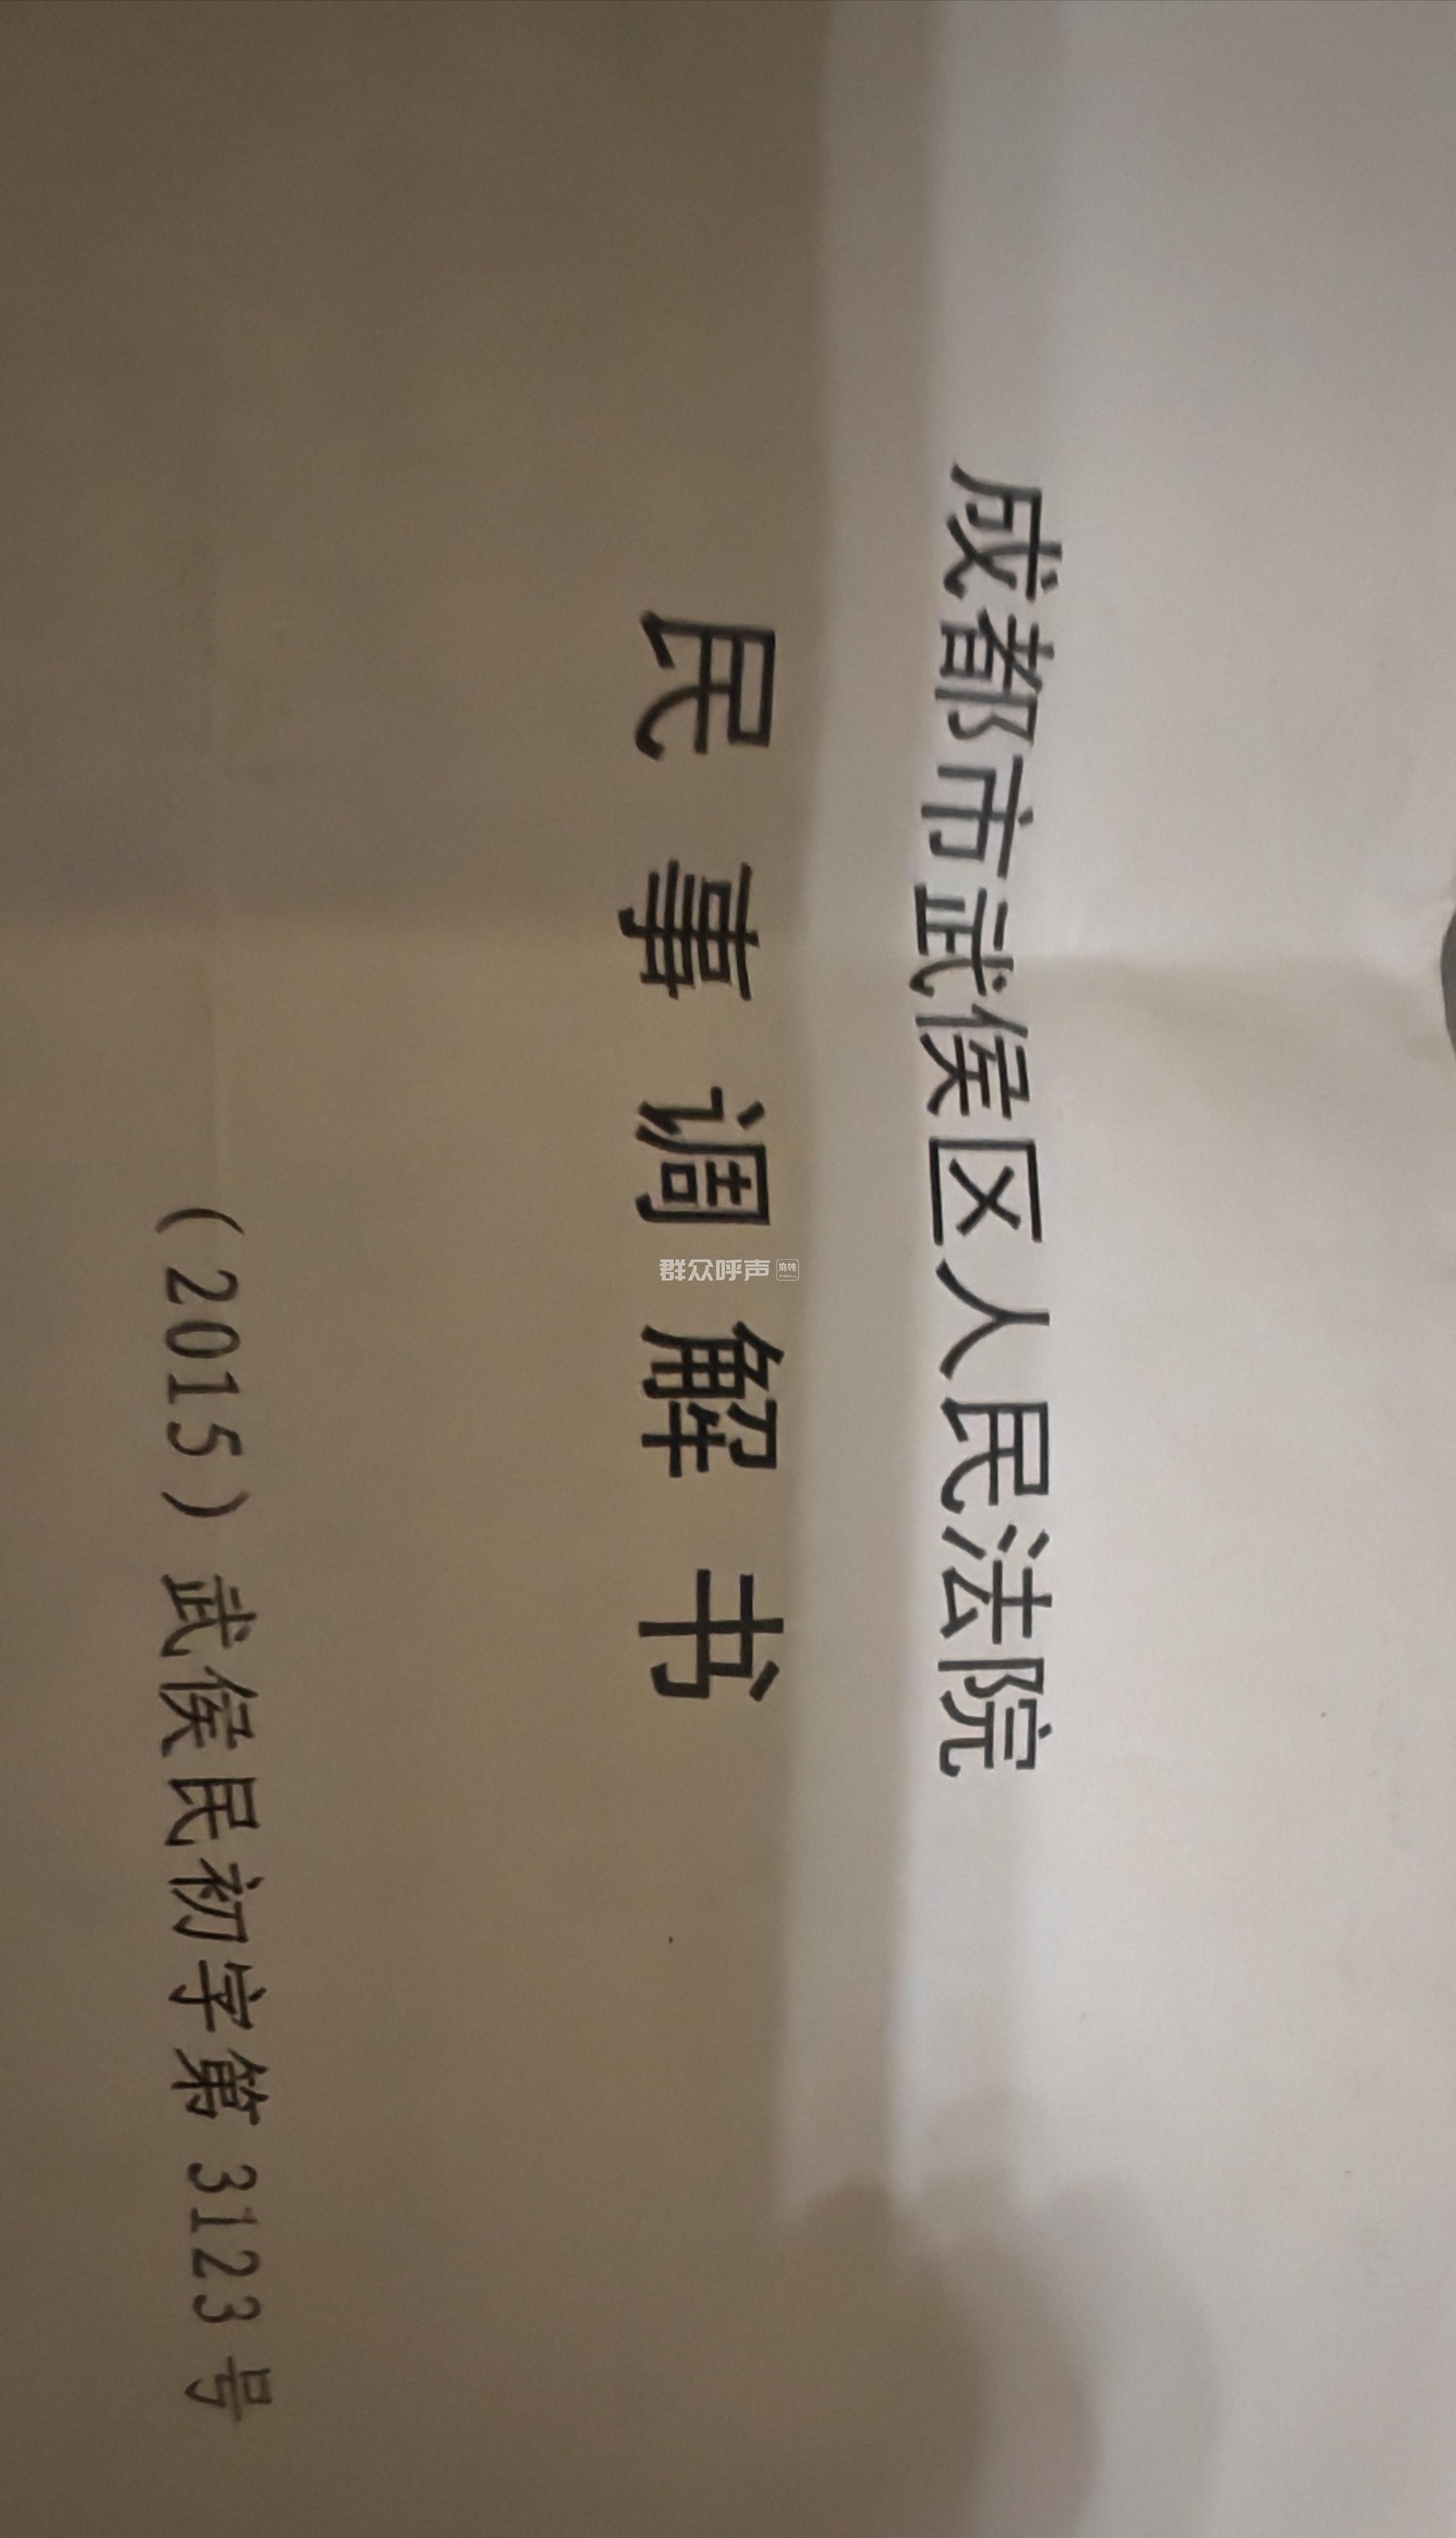 成都市武侯区人民法院
民事调解书
(2015)武侯民初字第3123号
群众呼声